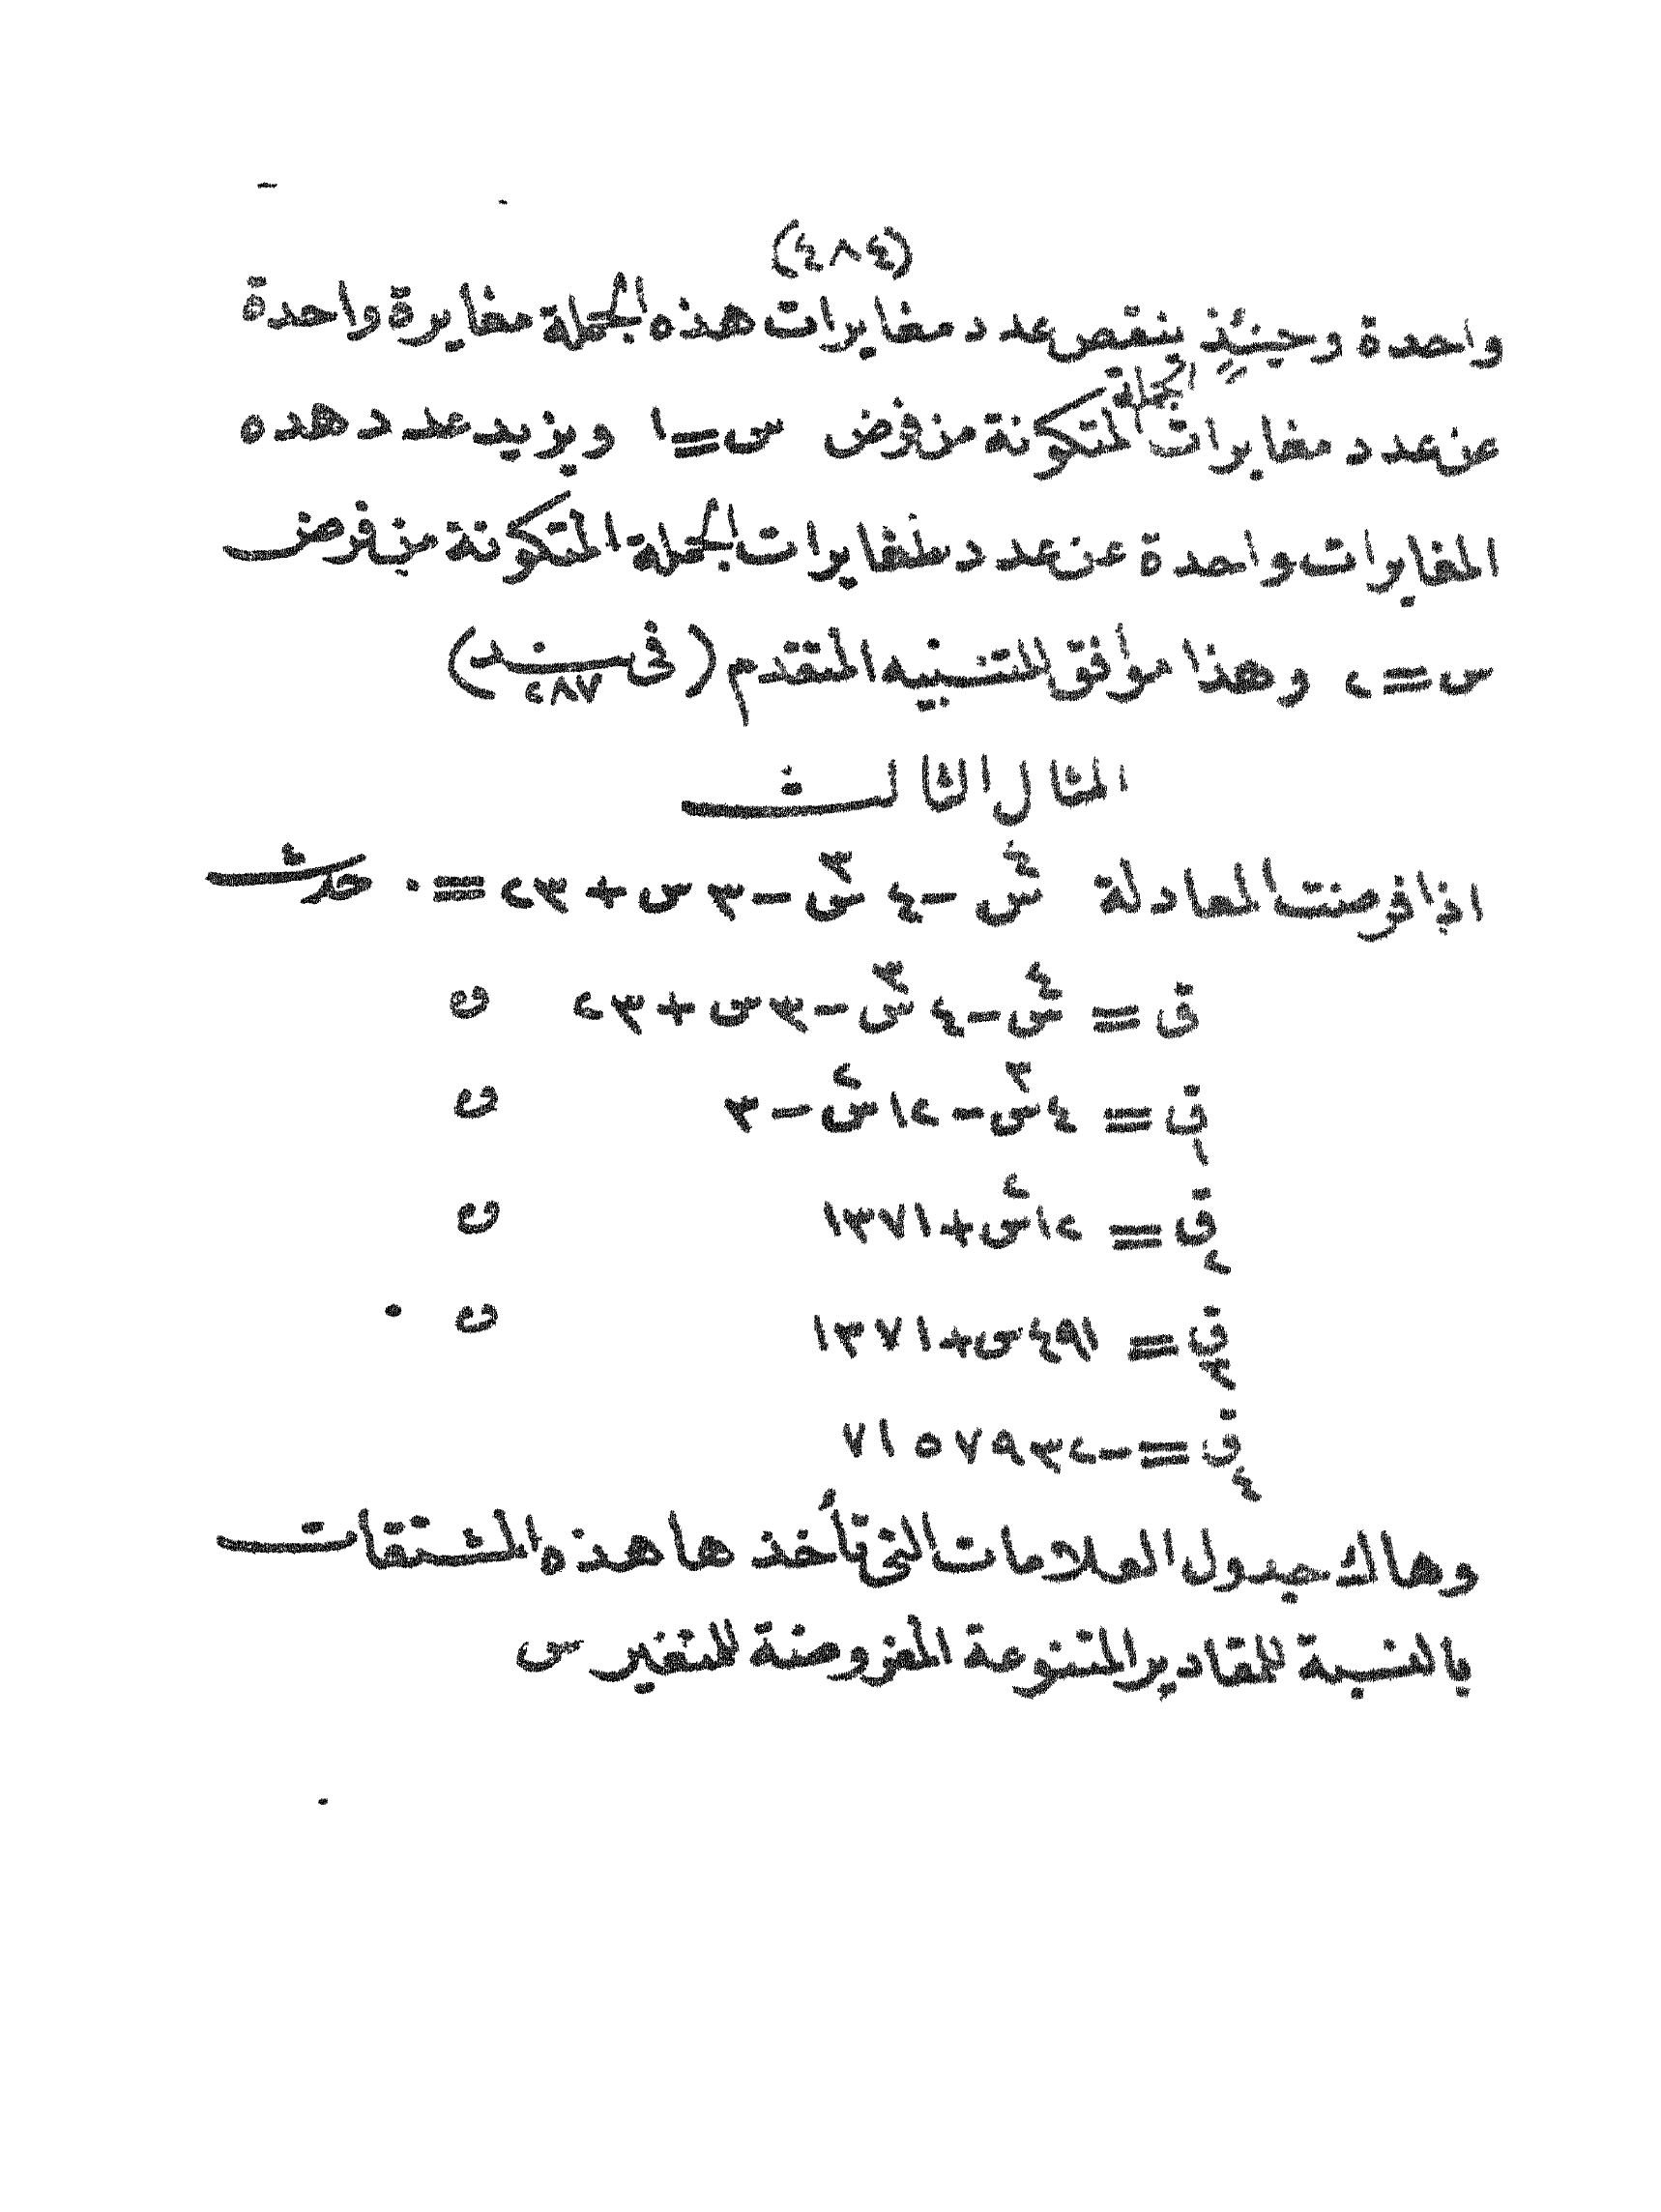 (٤٨٤)
واحدة وحينئذٍ ينقص عدد مغايرات هذه الجملة مغايرة واحدة
عن عدد مغايرات الجملة المتكونة من فرض س=١ ويزيد عدد هده
المغايرات واحدة عن عدد مغايرات الجملة المتكونة من فرض
س=٢ وهذا موافق للتنبيه المتقدم (فى سند ٢٨٧)
المثال الثالث
اذا فرضت المعادلة س^٤ -٤ س^٣ -٣ س + ٢٣ = ٠ حدث
ق = س^٤ -٤ س^٣ -٣ س + ٢٣ و
ق١ = ٤ س^٣ - ١٢ س^٢ - ٣ و
ق٢ = ١٢ س^٢ + ١٣٧١ و
ق٣ = ٤٩١ س + ١٣٧١ و
ق٤ = -٧١٥٧٩٣٢
وهاك جدول العلامات التى تأخذها هذه المشتقات
بالنسبة للمقادير المتنوعة المفروضة للمتغير س